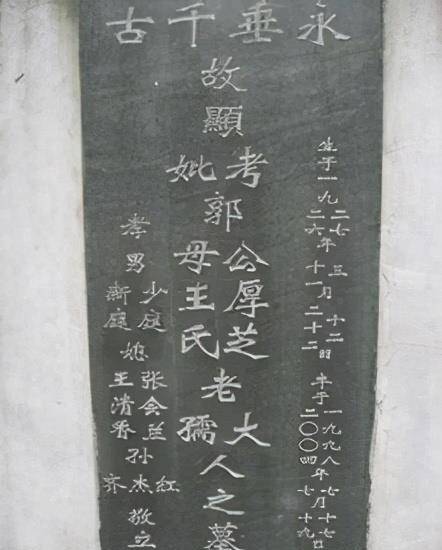 永垂千古
生于一九二七二六年三十一月十二二十二时 卒于一九九八二〇〇四年七七月十七十九日
故顯考妣郭公厚芝母王氏老大孺人之墓
孝男少庭新庭媳张会兰王清香孙红杰齐敬立